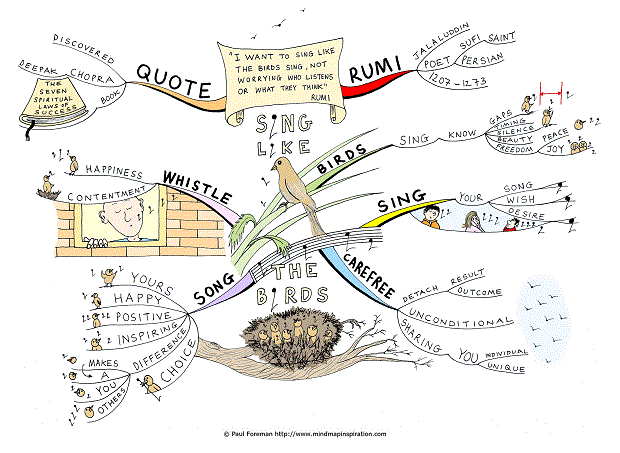 "I WANT TO SING LIKE
THE BIRDS SING, NOT
WORRYING WHO LISTENS
OR WHAT THEY THINK"
RUMI
SING
LIKE
THE
BIRDS
QUOTE
DISCOVERED
DEEPAK CHOPRA
BOOK
THE
SEVEN
SPIRITUAL
LAWS OF
SUCCESS
RUMI
JALALUDDIN
POET
SUFI SAINT
PERSIAN
1207-1273
BIRDS
SING KNOW
GAPS
TIMING
SILENCE
BEAUTY PEACE
FREEDOM JOY
SING
YOUR
SONG
WISH
DESIRE
CAREFREE
DETACH RESULT
OUTCOME
UNCONDITIONAL
SHARING YOU
INDIVIDUAL
UNIQUE
SONG
YOURS
HAPPY
POSITIVE
INSPIRING
DIFFERENCE
MAKES
A
YOU
OTHERS
CHOICE
WHISTLE
HAPPINESS
CONTENTMENT
© Paul Foreman http://www.mindmapinspiration.com